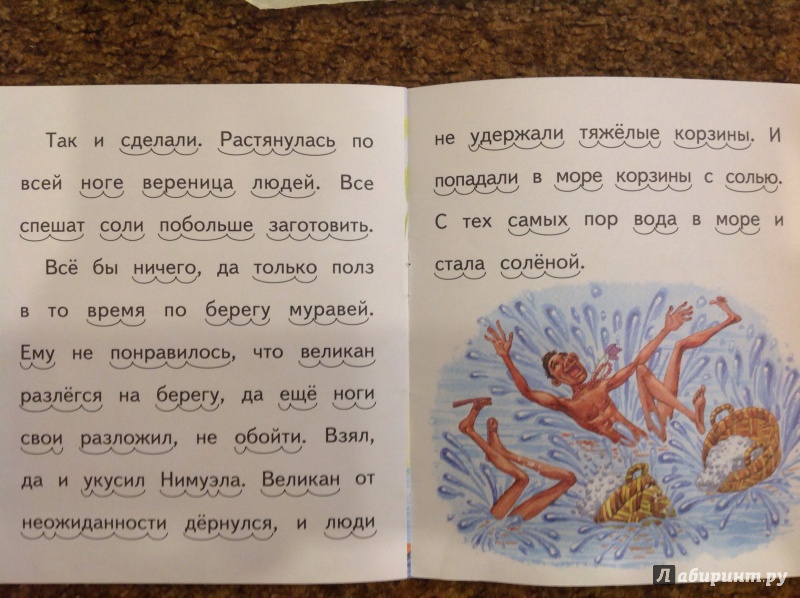 Так и сделали. Растянулась по
всей ноге вереница людей. Все
спешат соли побольше заготовить.
Всё бы ничего, да только полз
в то время по берегу муравей.
Ему не понравилось, что великан
разлёгся на берегу, да ещё ноги
свои разложил, не обойти. Взял,
да и укусил Нимуэла. Великан от
неожиданности дёрнулся, и люди
не удержали тяжёлые корзины. И
попадали в море корзины с солью.
С тех самых пор вода в море и
стала солёной.
Лабиринт.ру